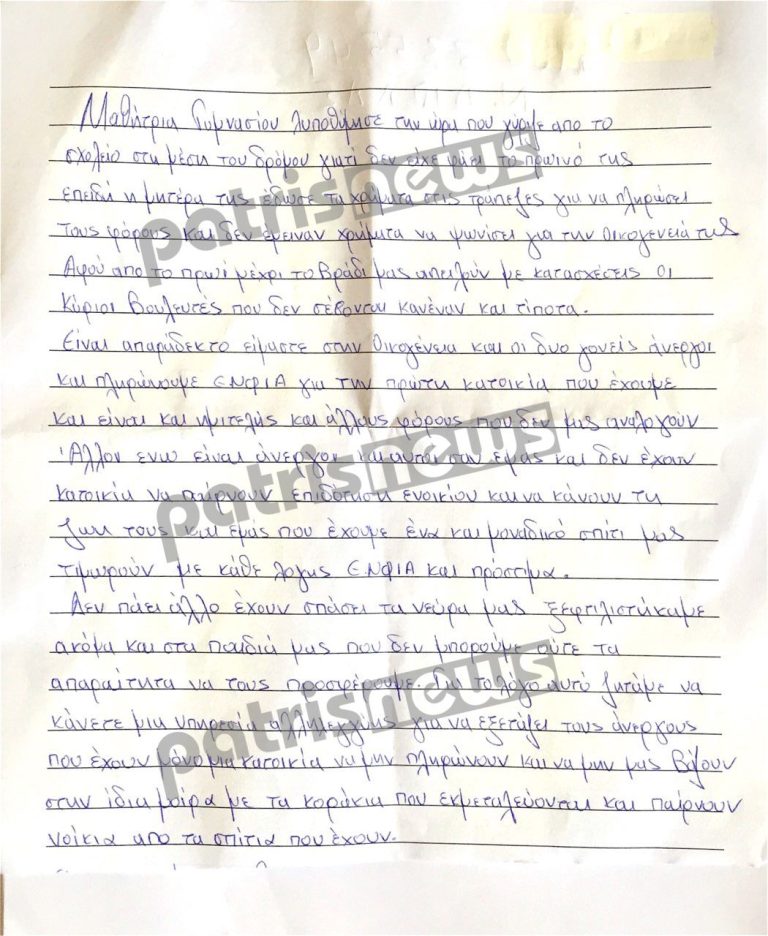 Μαθήτρια Γυμνασίου λυποθήμησε την ώρα που γύριζε απο το
σχολείο στη μέση του δρόμου γιατί δεν είχε φάει το πρωινό της
επειδή η μητέρα της έδωσε τα χρήματα στις τράπεζες για να πληρώσει
τους φόρους και δεν έμειναν χρήματα να ψωνίσει για την Οικογένειά της
Αφού απο το πρωί μέχρι το βράδι μας απειλούν με κατασχέσεις οι
Κύριοι Βουλευτές που δεν σέβονται κανέναν και τίποτα.
Είναι απαράδεκτο είμαστε στην Οικογένεια και οι δυο γονείς άνεργοι
και πληρώνουμε ΕΝΦΙΑ για την πρώτη κατοικία που έχουμε
και είναι και ημιτελής και άλλους φόρους που δεν μας αναλογούν
Άλλοι ενώ είναι άνεργοι και αυτοί σαν εμάς και δεν έχουν
κατοικία να παίρνουν επιδότηση ενοικίου και να κάνουν τη
ζωη τους και εμάς που έχουμε ένα και μοναδικό σπίτι μας
τιμωρούν με κάθε λογης ΕΝΦΙΑ και πρόστιμα.
Δεν πάει άλλο έχουν σπάσει τα νεύρα μας ξεφτιλιστήκαμε
ακόμα και στα παιδιά μας που δεν μπορούμε ούτε τα
απαραίτητα να τους προσφέρουμε. Για το λόγο αυτό ζητάμε να
κάνετε μια υπηρεσία αλληλεγγύης για να εξετάζει τους άνεργους
που έχουν μόνο μια κατοικία να μην πληρώνουν και να μην μας βάζουν
στην ίδια μοίρα με τα κοράκια που εκμεταλεύονται και παίρνουν
νοίκια απο τα σπίτια που έχουν.
patrisnews
patrisnews
patrisnews